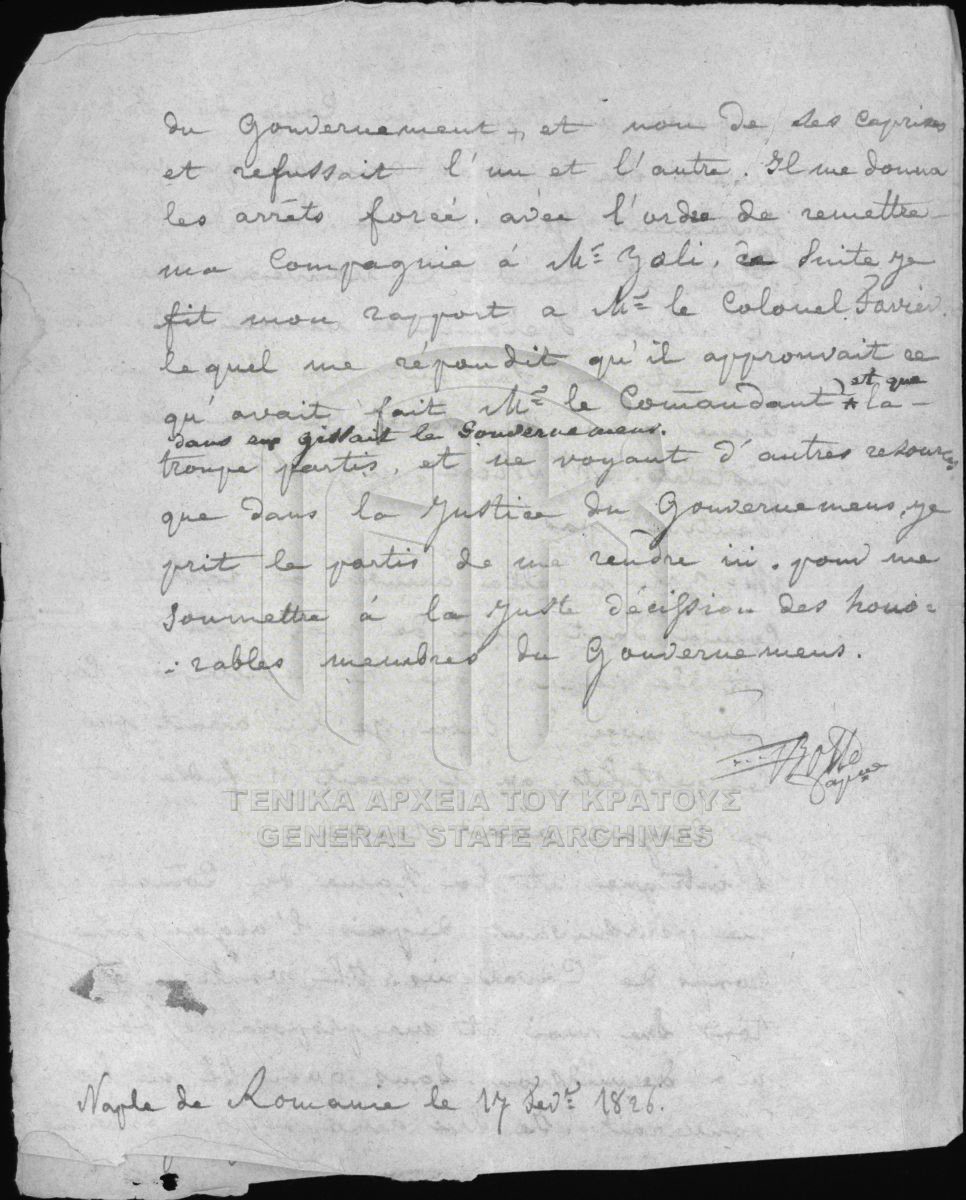 du Gouvernement, et non de ses caprises
et refussait l'un et l'autre. Il me donna
les arrêts forcé. avec l'ordre de remettre
ma Compagnie á Mr Yoli, de Suite je
fit mon rapport a Mr le Colonel Favier.
le quel me répondit qu'il approuvait ce
qu'avait fait Mr le Comandant et que
dans eux gissait le Gouvernemens. la
troupe partis, et ne voyant d'autres resources
que dans la Justice du Gouvernemens, je
prit le partis de me rendre ici. pour me
Soumettre á la Juste décission des hono=
=rables membres du Gouvernemens.
Botte
ΓΕΝΙΚΑ ΑΡΧΕΙΑ ΤΟΥ ΚΡΑΤΟΥΣ
GENERAL STATE ARCHIVES
Naple de Romanie le 17 Fevr 1826.